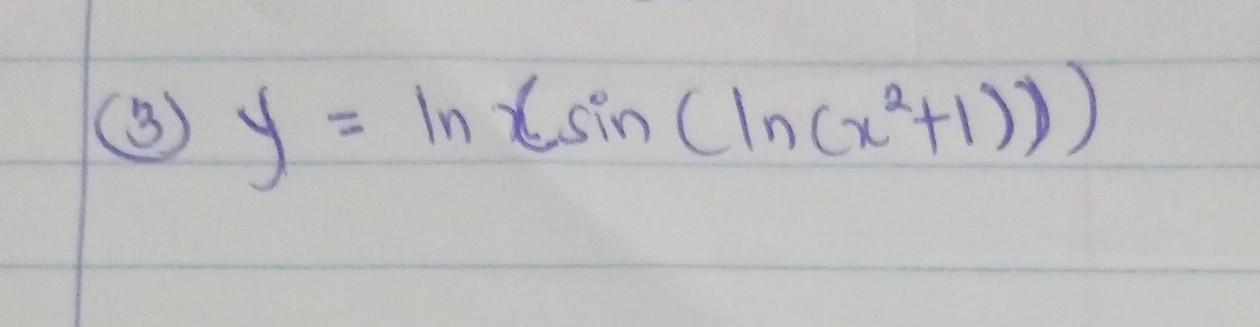 (3) y = ln x(sin (ln(x²+1))))